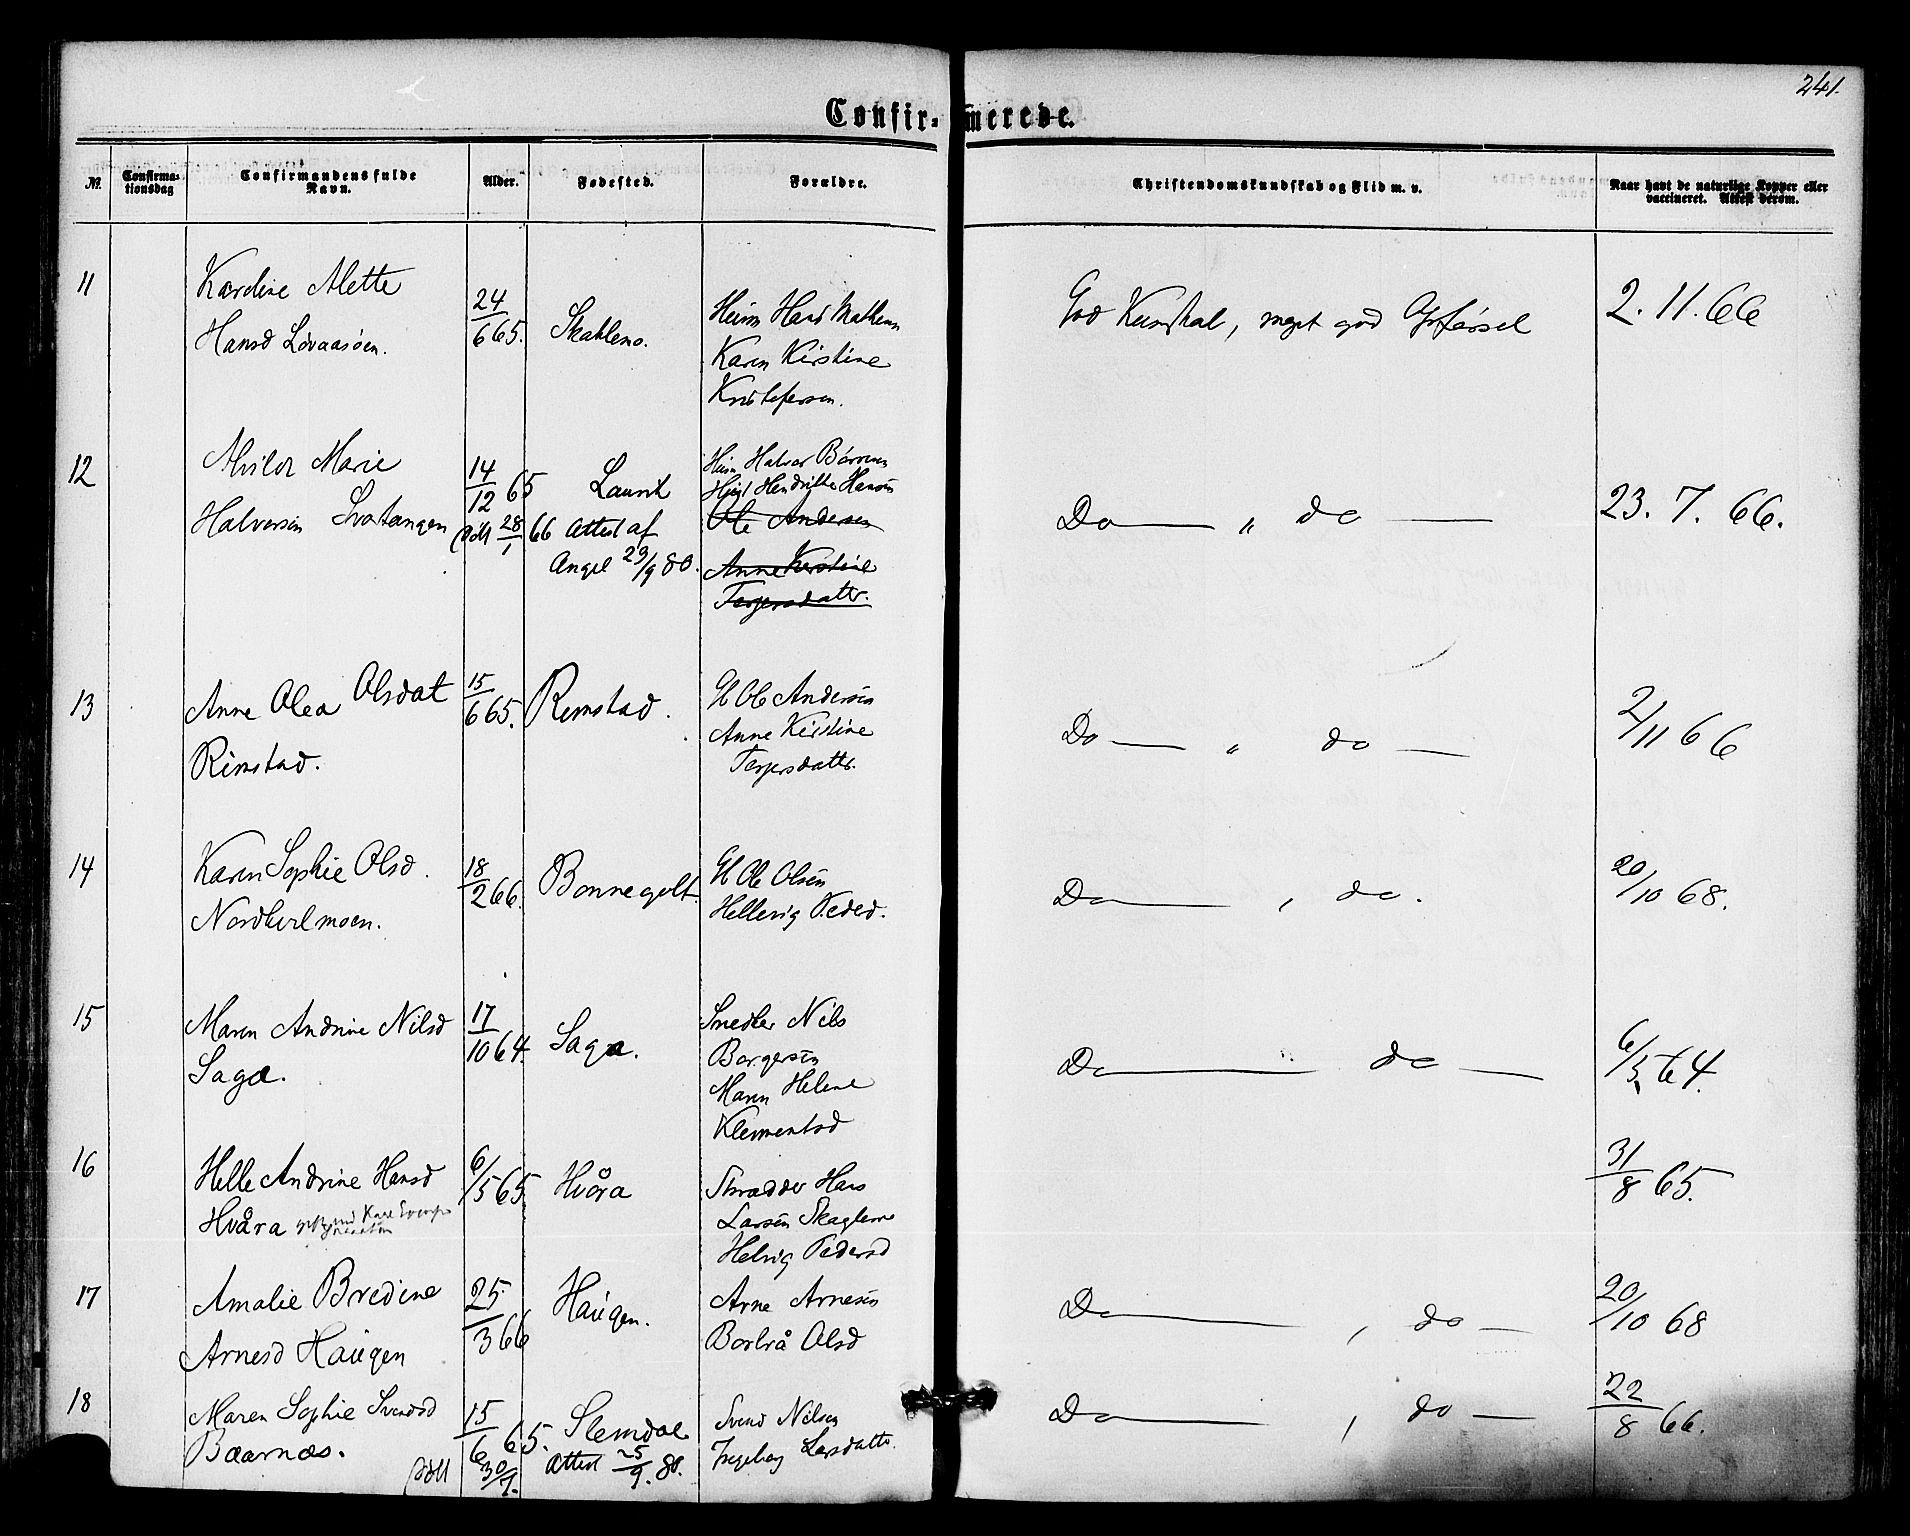 241.
Confir- merede.
№. Confirma-tionsdag Confirmandens fulde Navn. Alder. Fødested. Forældre. Christendomskundskab og Flid m. v. Naar havt de naturlige Kopper eller vaccineret. Attest derom.
11 Karoline Alette 24/6 65. Skahleno. Huusm Hans Mathesen God Kundskab, meget god Opførsel 2. 11. 66
Hansd Lövaasøen. Karen Kirstine
Kristofersen.
12 Alvilde Marie 14/12 65 Laurit Huusm Halvor Börresen Do — " do — 23. 7. 66.
Halvorsen Svatangen døbt 28/1 66 Attest af Hendrikke Hansen
Angel 23/9 80. Ole Andersen
Anne Kirstine
Terjersdattr.
13 Anne Olea Olsdat 15/6 65. Rimstad. G Ole Andersen Do — " do — 2/11 66
Rimstad. Anne Kirstine
Terjersdattr.
14 Karen Sophie Olsd. 18/2 66. Bonnegolt G Ole Olsen Do — , do. 20/10 68.
Nordbølmoen. Hellevig Pedsd.
15 Maren Andrine Nilsd 17/10 64. Saga. Smedker Nils Do — do — 6/5 64.
Saga. Borgersen
Maren Helene
Klementsd
16 Helle Andrine Hansd 6/5 65. Hvåra Skrædder Hans 31/8 65.
Hvåra Larsen Skaglem
Helvig Pedersd
17 Amalie Bredine 25/3 66 Haugen. Arne Arnesen Do — , do — 20/10 68
Arnesd Haugen Borbrå Olsd
18 Maren Sophie Svendsd 15/6 65. Slemdal Svend Nilsen Do — , do — 22/8 66.
Baarnæs. døbt 30/7. Attest 25/9. 80. Ingeborg Larsdattr.